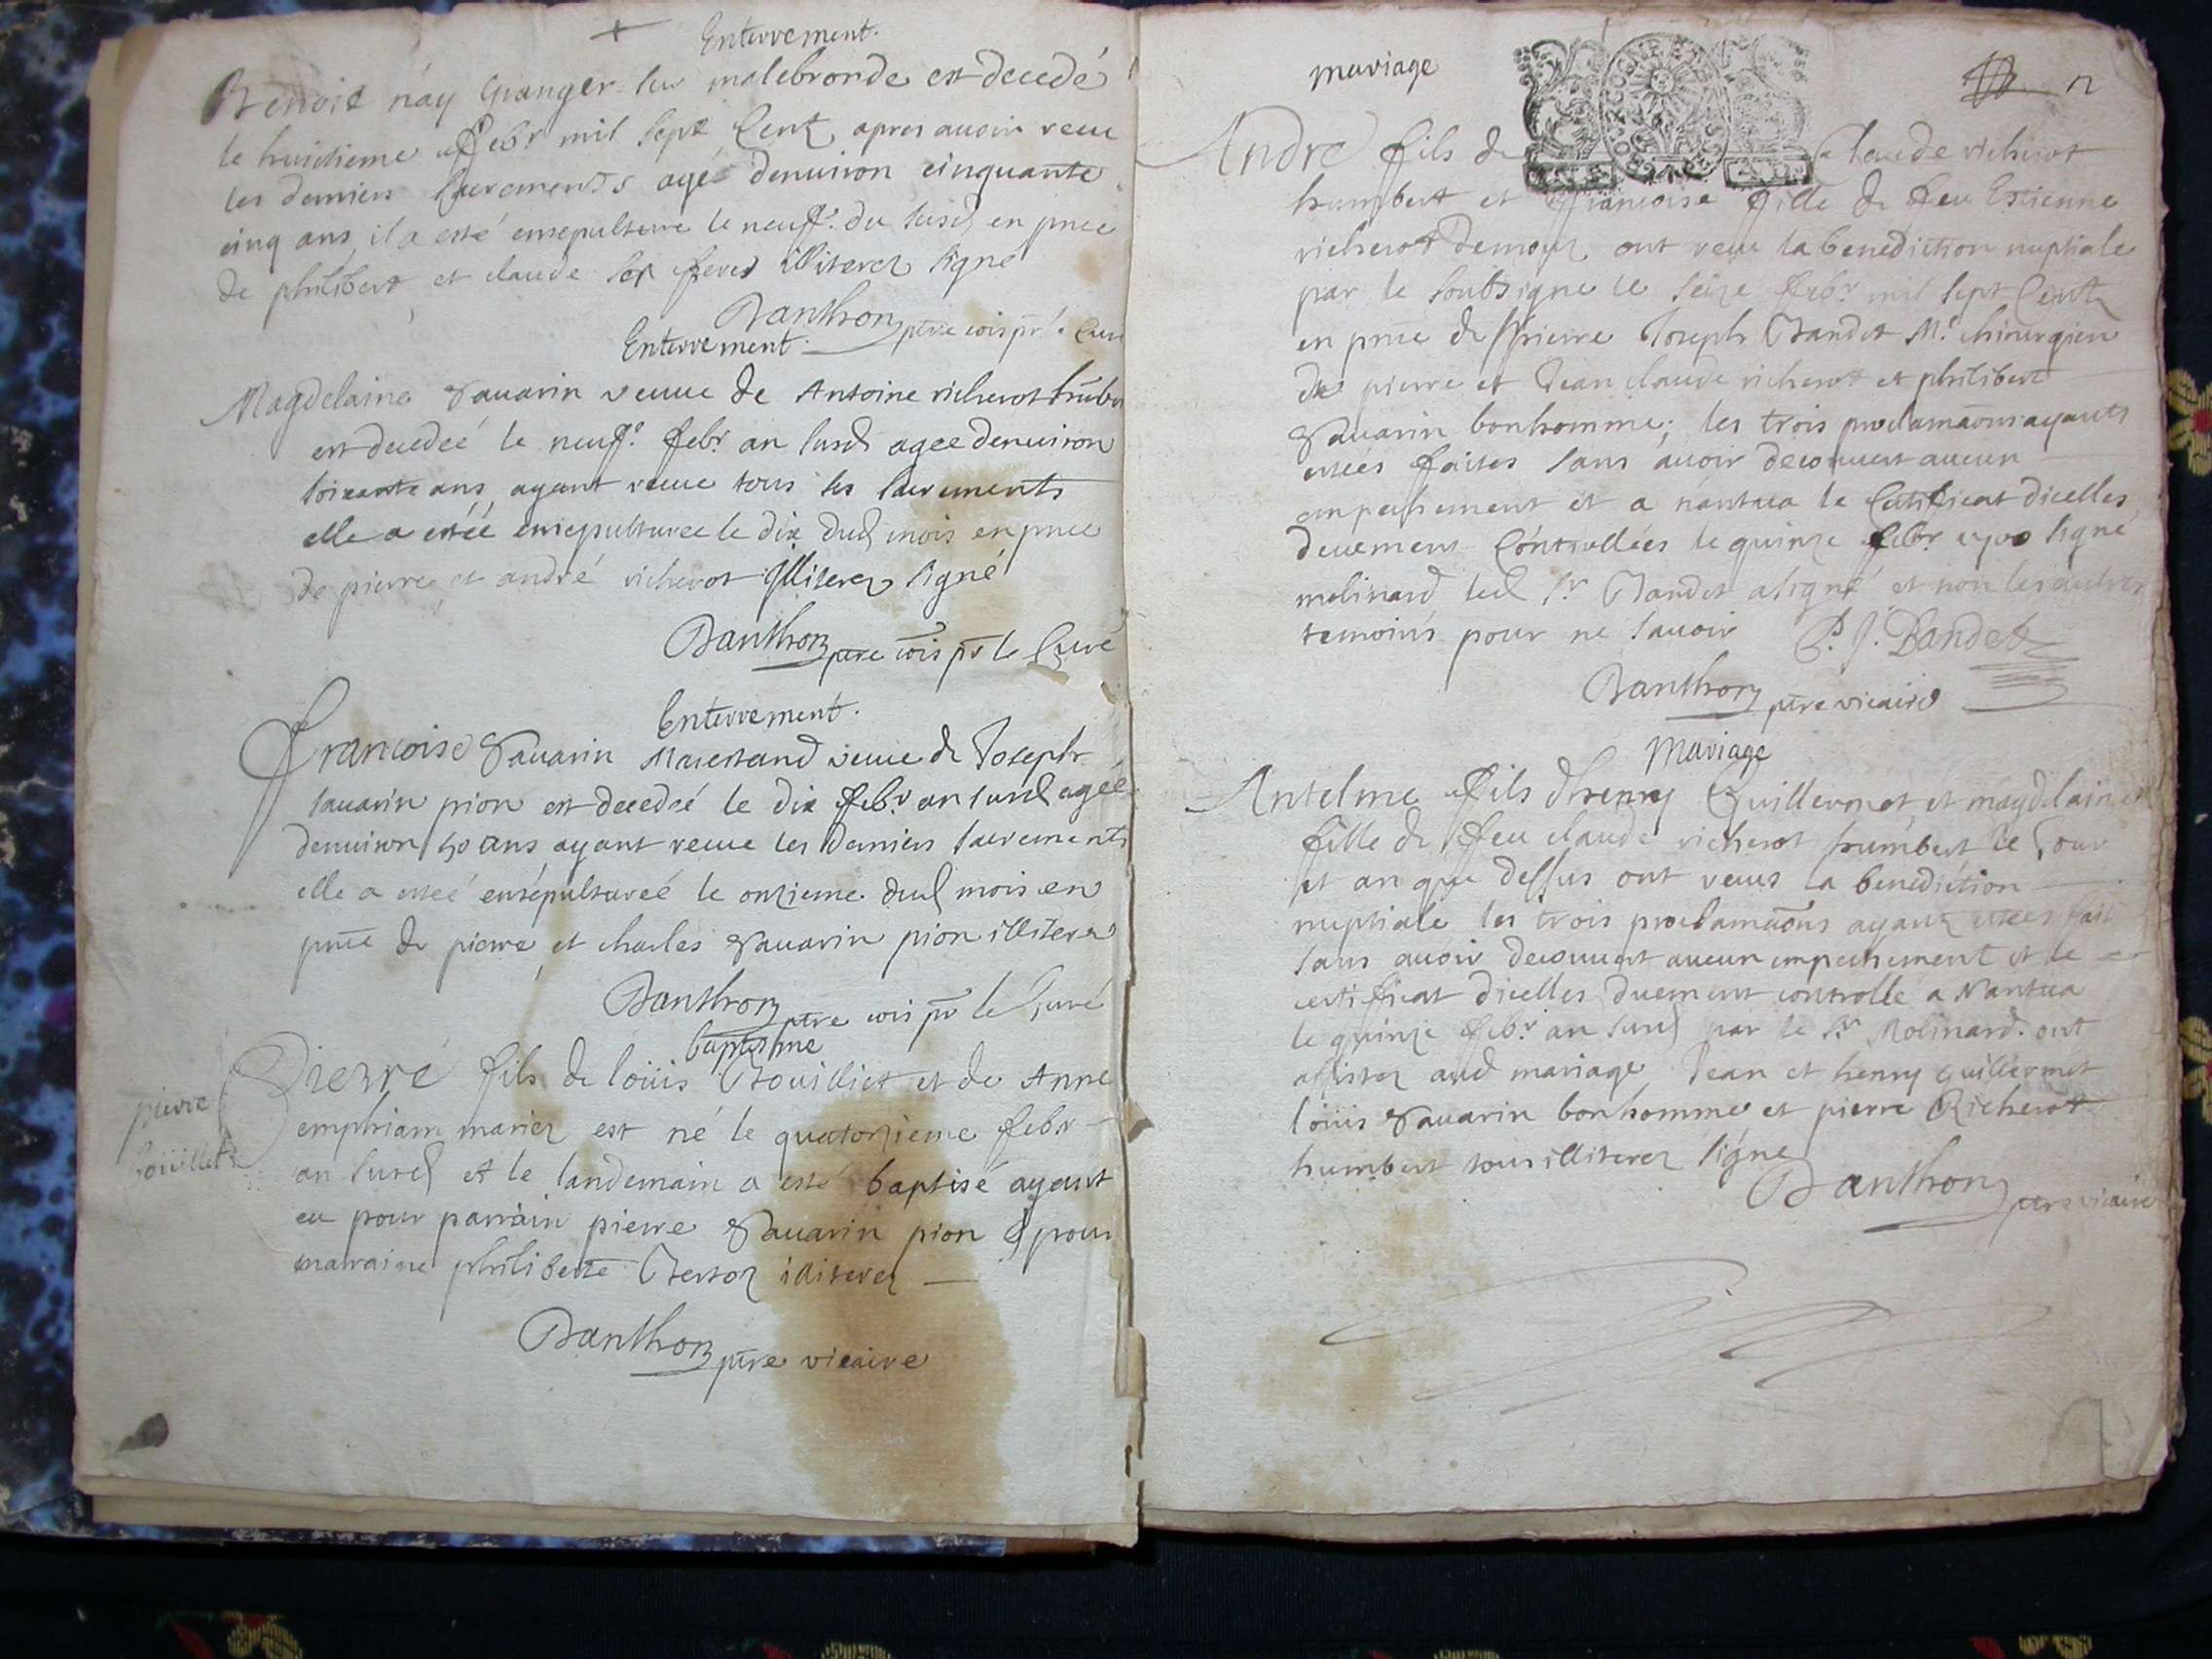 Enterrement.
Benoit náy Granger sur malebronde est decedé
le huictieme febr mil sept Cent, apres auoir receu
les derniers sacrements agé denuiron cinquante
cinq ans il a esté ensepulture le neuf.e du susd en pnce
de philibert et claude ses freres illiterez signé
Danthon ptre cois pr le Cure
Enterrement.
Magdelaine Sauarin veuue de Antoine richerot humb
est decedeé le neuf.e febr. an susd agee denuiron
soixante ans ayant receue tous les sacrements
elle a estée ensepulturee le dix dud mois en pnce
de pierre et andré richerot Illiterez signé
Danthon ptre cois pr le Curé
Enterrement.
Francoise Sauarin Marestand veuue de Joseph
sauarin pion est decedeé le dix febr. an susd ageé
denuiron 50 ans ayant receue les derniers sacrements
elle a esteé ensépultureé le onzieme dud mois en
pnce de pierre et charles Sauarin pion illiterez
Danthon ptre cois pr le Curé
baptesme
pierre
bouillet
Pierre fils de loüis Bouilliet et de Anne
emphiam mariez est né le quatorzieme febr
an susd et le landemain a esté baptisé ayant
eu pour parrain pierre Sauarin pion & pour
maraine philiberte Bertoz illiterez
Danthon ptre vicaire
mariage
n
André fils de Claude richerot
humbert et francoise fille de feu Estienne
richerot demouz ont receu la benediction nuptiale
par le soubsigne le seize febr. mil sept Cent
en pnce de Pierre Joseph Bandet M.e chirurgien
de pierre et Jean claude richerot et philibert
Sauarin bonhomme; les trois proclamaons ayants
estées faites sans auoir decouuert aucun
empeschement et a nantua le Certificat dicelles
deuement Controllées le quinze febr. 1700 signé
molinard led Sr Bandet a signé et non les autres
temoins pour ne sauoir P. J. Bandet
Danthon ptre vicaire
Mariage
Antelme fils dhenry Guillermet et magdelaine
fille de feu claude richerot humbert le Jour
et an que dessus ont receus la benediction
nuptiale les trois proclamaons ayant estées fait
sans auoir decouuert aucun empechement et le
certificat dicelles duement controllé a Nantua
le quinze febr. an susd par le Sr Molinard. ont
assistez aud mariage Jean et henry guillermet
loüis Sauarin bonhomme et pierre Richerot
humbert tous illiterez signé
Danthon ptre vicaire